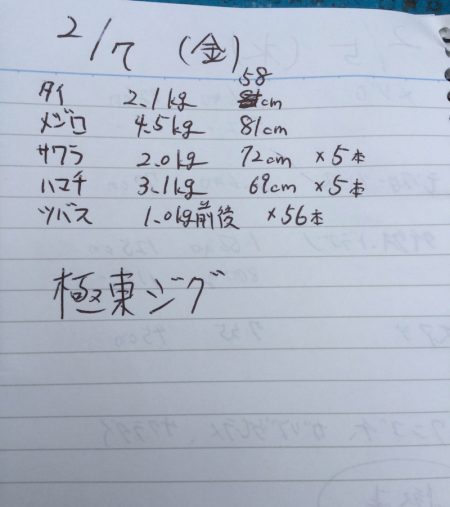 2/7 (金)
タイ 2.1kg 58cm
メジロ 4.5kg 81cm
サワラ 2.0kg 72cm ×5本
ハマチ 3.1kg 69cm ×5本
ツバス 1.0kg前後 ×56本
極東ジグ